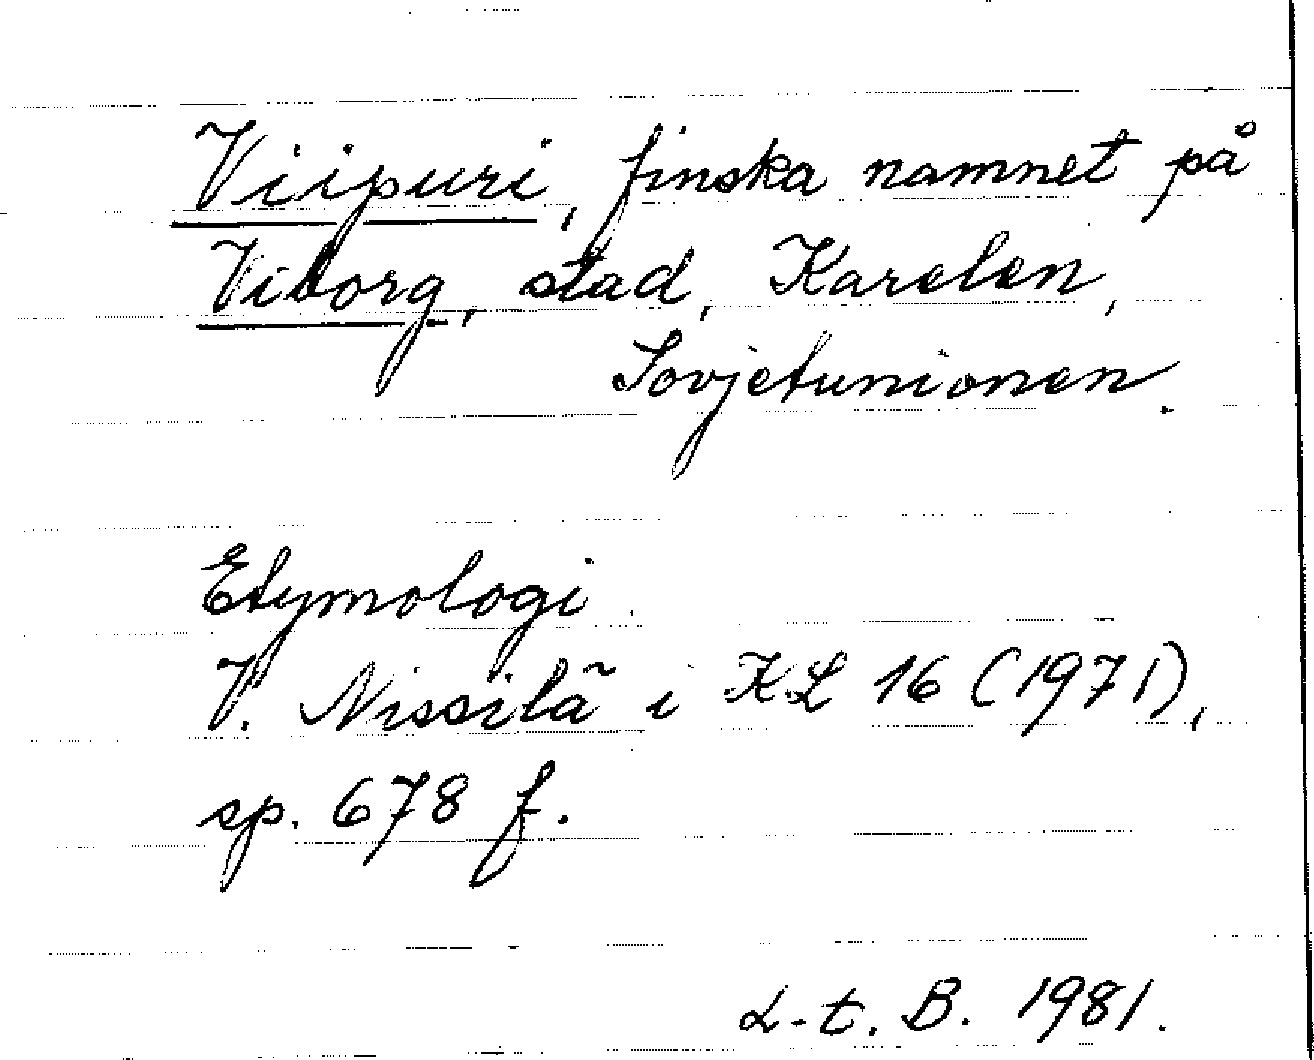 Viipuri, finska namnet på
Viborg, stad, Karelen,
Sovjetunionen.
Etymologi.
V. Nissilä i KL 16 (1971),
sp. 678 f.
L-t. B. 1981.